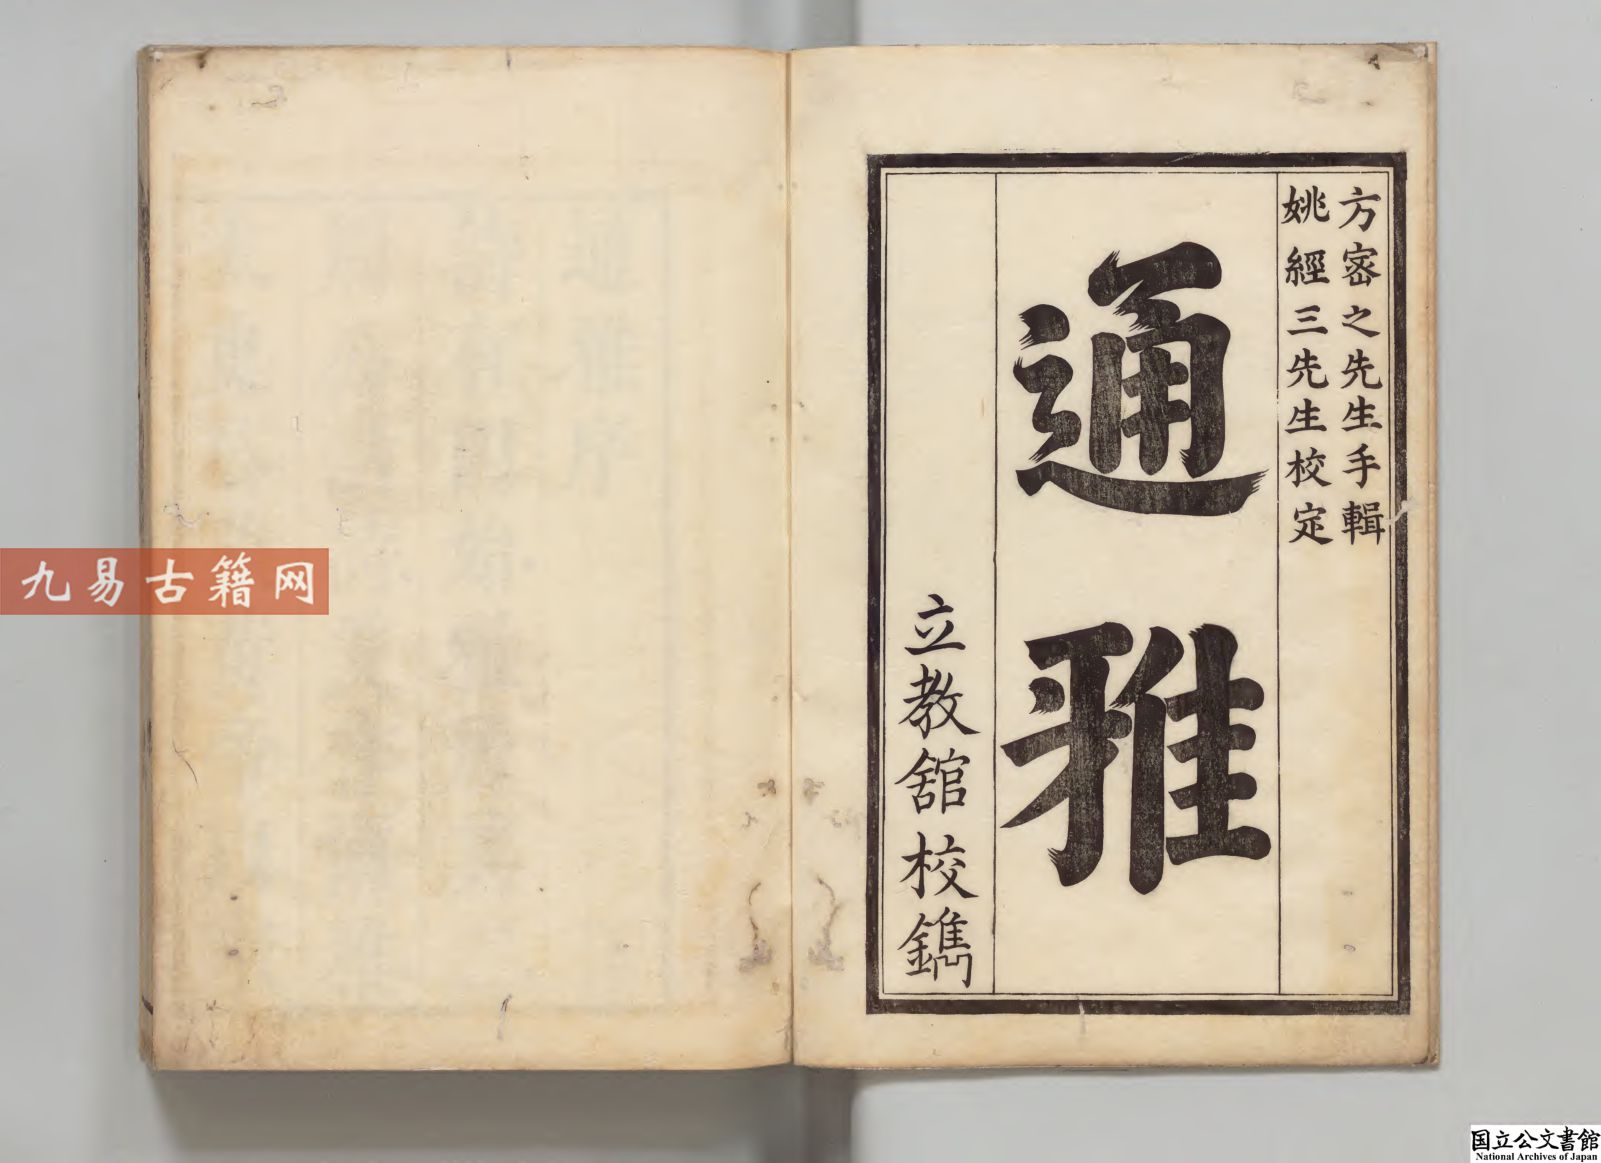 方密之先生手輯
姚經三先生校定
通雅
立教舘校鐫
九易古籍网
国立公文書館
National Archives of Japan